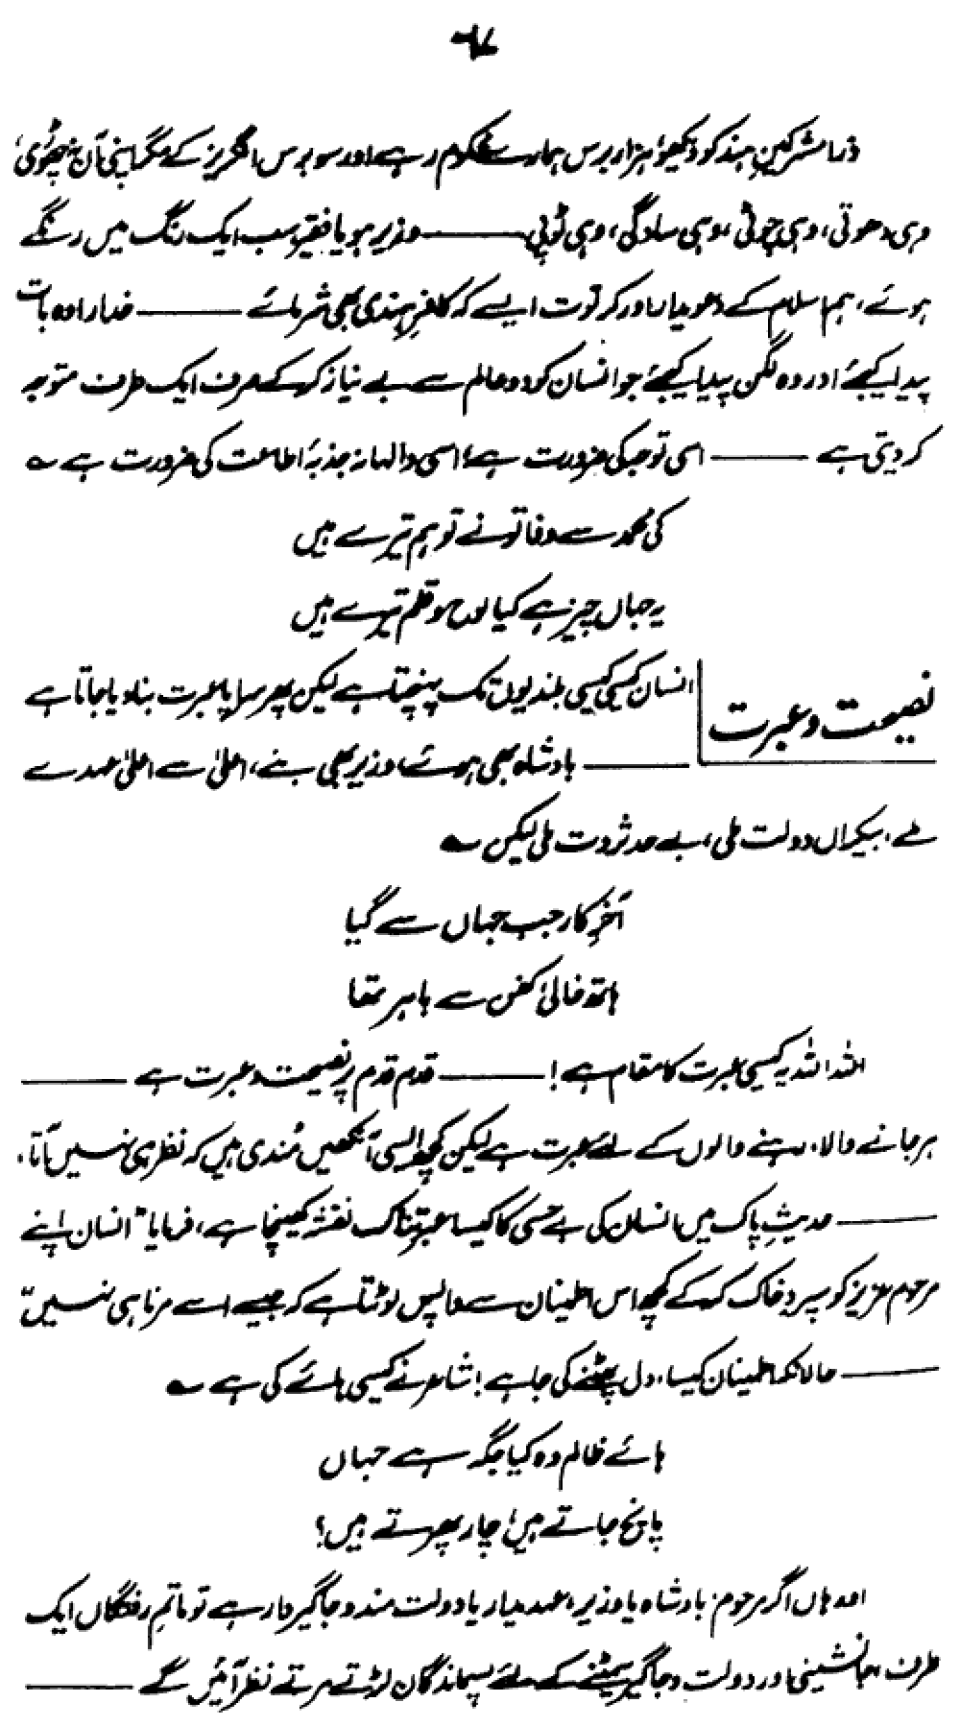 ۶۷
ذرا مشرکینِ ہند کو دیکھو، ہزار برس ہمارے محکوم رہے اور سو برس انگریز کے مگر اپنی آن نہ چھوڑی،
وہی دھوتی، وہی چوٹی، وہی سادگی، وہی ٹوپی ——— وزیر ہو یا فقیر سب ایک رنگ میں رنگے
ہوئے، ہم اسلام کے دعویدار اور کرتوت ایسے کہ کافرِ ہندی بھی شرمائے ——— خدارا وہ بات
پیدا کیجئے اور وہ لگن پیدا کیجئے جو انسان کو دو عالم سے بے نیاز کر کے صرف ایک طرف متوجہ
کر دیتی ہے ——— اسی توجہ کی ضرورت ہے، اسی والہانہ جذبۂ اطاعت کی ضرورت ہے ؎
کی محمد سے وفا تو نے تو ہم تیرے ہیں
یہ جہاں چیز ہے کیا لوح و قلم تیرے ہیں
نصیحت و عبرت
انسان کیسی کیسی بلندیوں تک پہنچتا ہے لیکن پھر سراپا عبرت بنا دیا جاتا ہے
——— بادشاہ بھی ہوئے، وزیر بھی بنے، اعلیٰ سے اعلیٰ عہدے
ملے، بیکراں دولت ملی، بے حد ثروت ملی لیکن ؎
آخرِ کار جب جہاں سے گیا
ہاتھ خالی کفن سے باہر تھا
اللہ اللہ یہ کیسی عبرت کا مقام ہے! ——— قدم قدم پر نصیحت و عبرت ہے ———
ہر جانے والا، رہنے والوں کے لئے عبرت ہے لیکن کچھ ایسی آنکھیں مُندی ہیں کہ نظر ہی نہیں آتا،
——— حدیثِ پاک میں انسان کی بے حسی کا کیسا عبرتناک نقشہ کھینچا ہے، فرمایا "انسان اپنے
مرحوم عزیز کو سپردِ خاک کر کے کچھ اس اطمینان سے واپس لوٹتا ہے کہ جیسے اسے مرنا ہی نہیں"
——— حالانکہ اطمینان کیسا، دل پھٹنے کی جا ہے! شاعر نے کیسی ہائے کی ہے ؎
ہائے ظالم وہ کیا جگہ ہے جہاں
پانچ جاتے ہیں، چار پھرتے ہیں؟
اور ہاں اگر مرحوم، بادشاہ یا وزیر، عہدیدار یا دولت مند و جاگیردار ہے تو ماتمِ رفتگاں ایک
طرف، جانشینی اور دولت و جاگیر سمیٹنے کے لئے پسماندگان لڑتے مرتے نظر آئیں گے ———